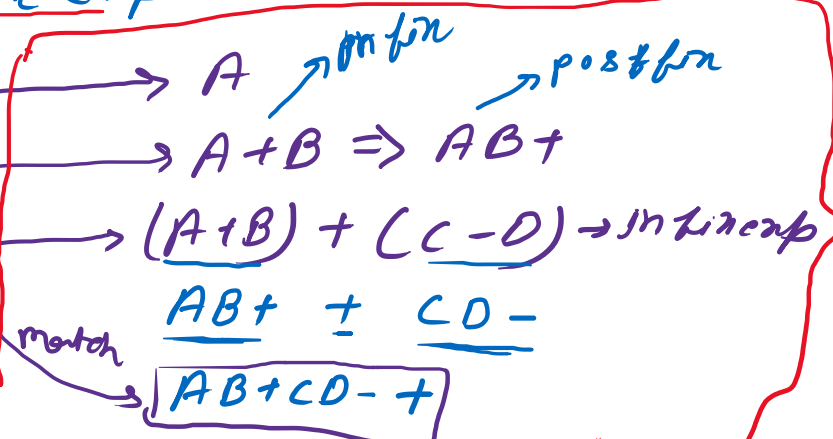 infix postfix
A
A + B ⇒ AB+
(A+B) + (C-D) → infix exp
AB+ + CD-
match
AB+CD-+